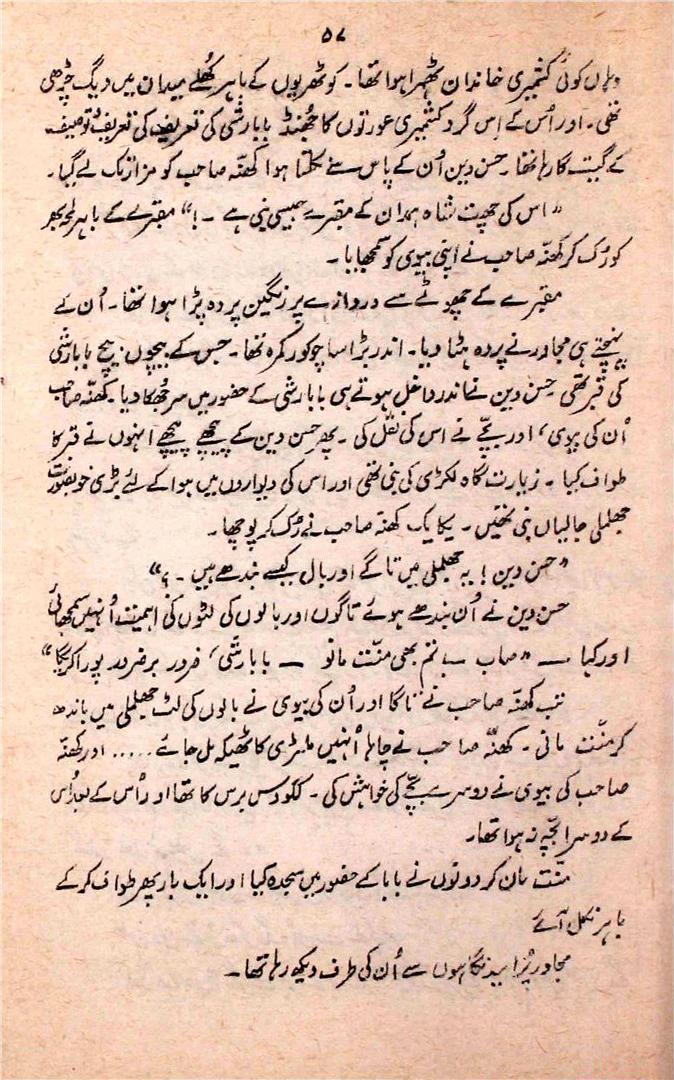 ۵۷
وہاں کوئی کشمیری خاندان ٹھہرا ہوا تھا۔ کوٹھریوں کے باہر کُھلے میدان میں دیگ چڑھی
تھی۔ اور اُس کے اِس گرد کشمیری عورتوں کا جُھنڈ بابا رشی کی تعریف کی تعریف و توصیف
کے گیت گا رہا تھا۔ حسن دین اُن کے پاس سے نکلتا ہوا کھنّہ صاحب کو مزار تک لے گیا۔
”اس کی چھت شاہ ہمدان کے مقبرے جیسی بنی ہے ۔!“ مقبرے کے باہر لمحہ بھر
کو رُک کر کھنّہ صاحب نے اپنی بیوی کو سمجھایا۔
مقبرے کے چھوٹے سے دروازے پر رنگین پردہ پڑا ہوا تھا۔ اُن کے
پہنچتے ہی مجاور نے پردہ ہٹا دیا۔ اندر بڑا سا چوکور کمرہ تھا۔ جس کے بیچوں بیچ بابا رشی
کی قبر تھی حسن دین نے اندر داخل ہوتے ہی بابا رشی کے حضور میں سر جُھکا دیا۔ کھنّہ صاحب
اُن کی بیوی، اور بچّے نے اس کی نقل کی۔ پھر حسن دین کے پیچھے پیچھے اُنہوں نے قبر کا
طواف کیا۔ زیارت گاہ لکڑی کی بنی تھی اور اس کی دیواروں میں ہوا کے لئے بڑی خوبصورت
جھلملی جالیاں بنی تھیں۔ یکایک کھنّہ صاحب نے رُک کر پوچھا۔
”حسن دین! یہ جھلملی میں تاگے اور بال کیسے بندھے ہیں ۔؟“
حسن دین نے اُن بندھے ہوئے تاگوں اور بالوں کی لٹوں کی اہمیت اُنہیں سمجھائی
اور کہا — ”صاب سب تم بھی منّت مانو — بابا رشی، ضرور بر ضرور پورا کریگا“
تب کھنّہ صاحب نے تاگا اور اُن کی بیوی نے بالوں کی لٹ جھلملی میں باندھ
کر منّت مانی۔ کھنّہ صاحب نے چاہا اُنہیں ملٹری کا ٹھیکہ مل جائے..... اور کھنّہ
صاحب کی بیوی نے دوسرے بچّے کی خواہش کی۔ ککو دس برس کا تھا اور اُس کے بعد اُس
کے دوسرا بچّہ نہ ہوا تھا۔
منّت مان کر دونوں نے بابا کے حضور میں سجدہ کیا اور ایک بار پھر طواف کر کے
باہر نکل آئے
مجاور پُر امید نگاہوں سے اُن کی طرف دیکھ رہا تھا۔